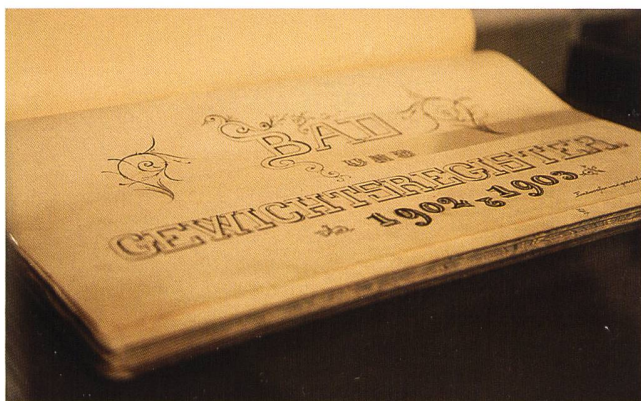 BAD
UND
GEWICHTSREGISTER.
1902 & 1903.